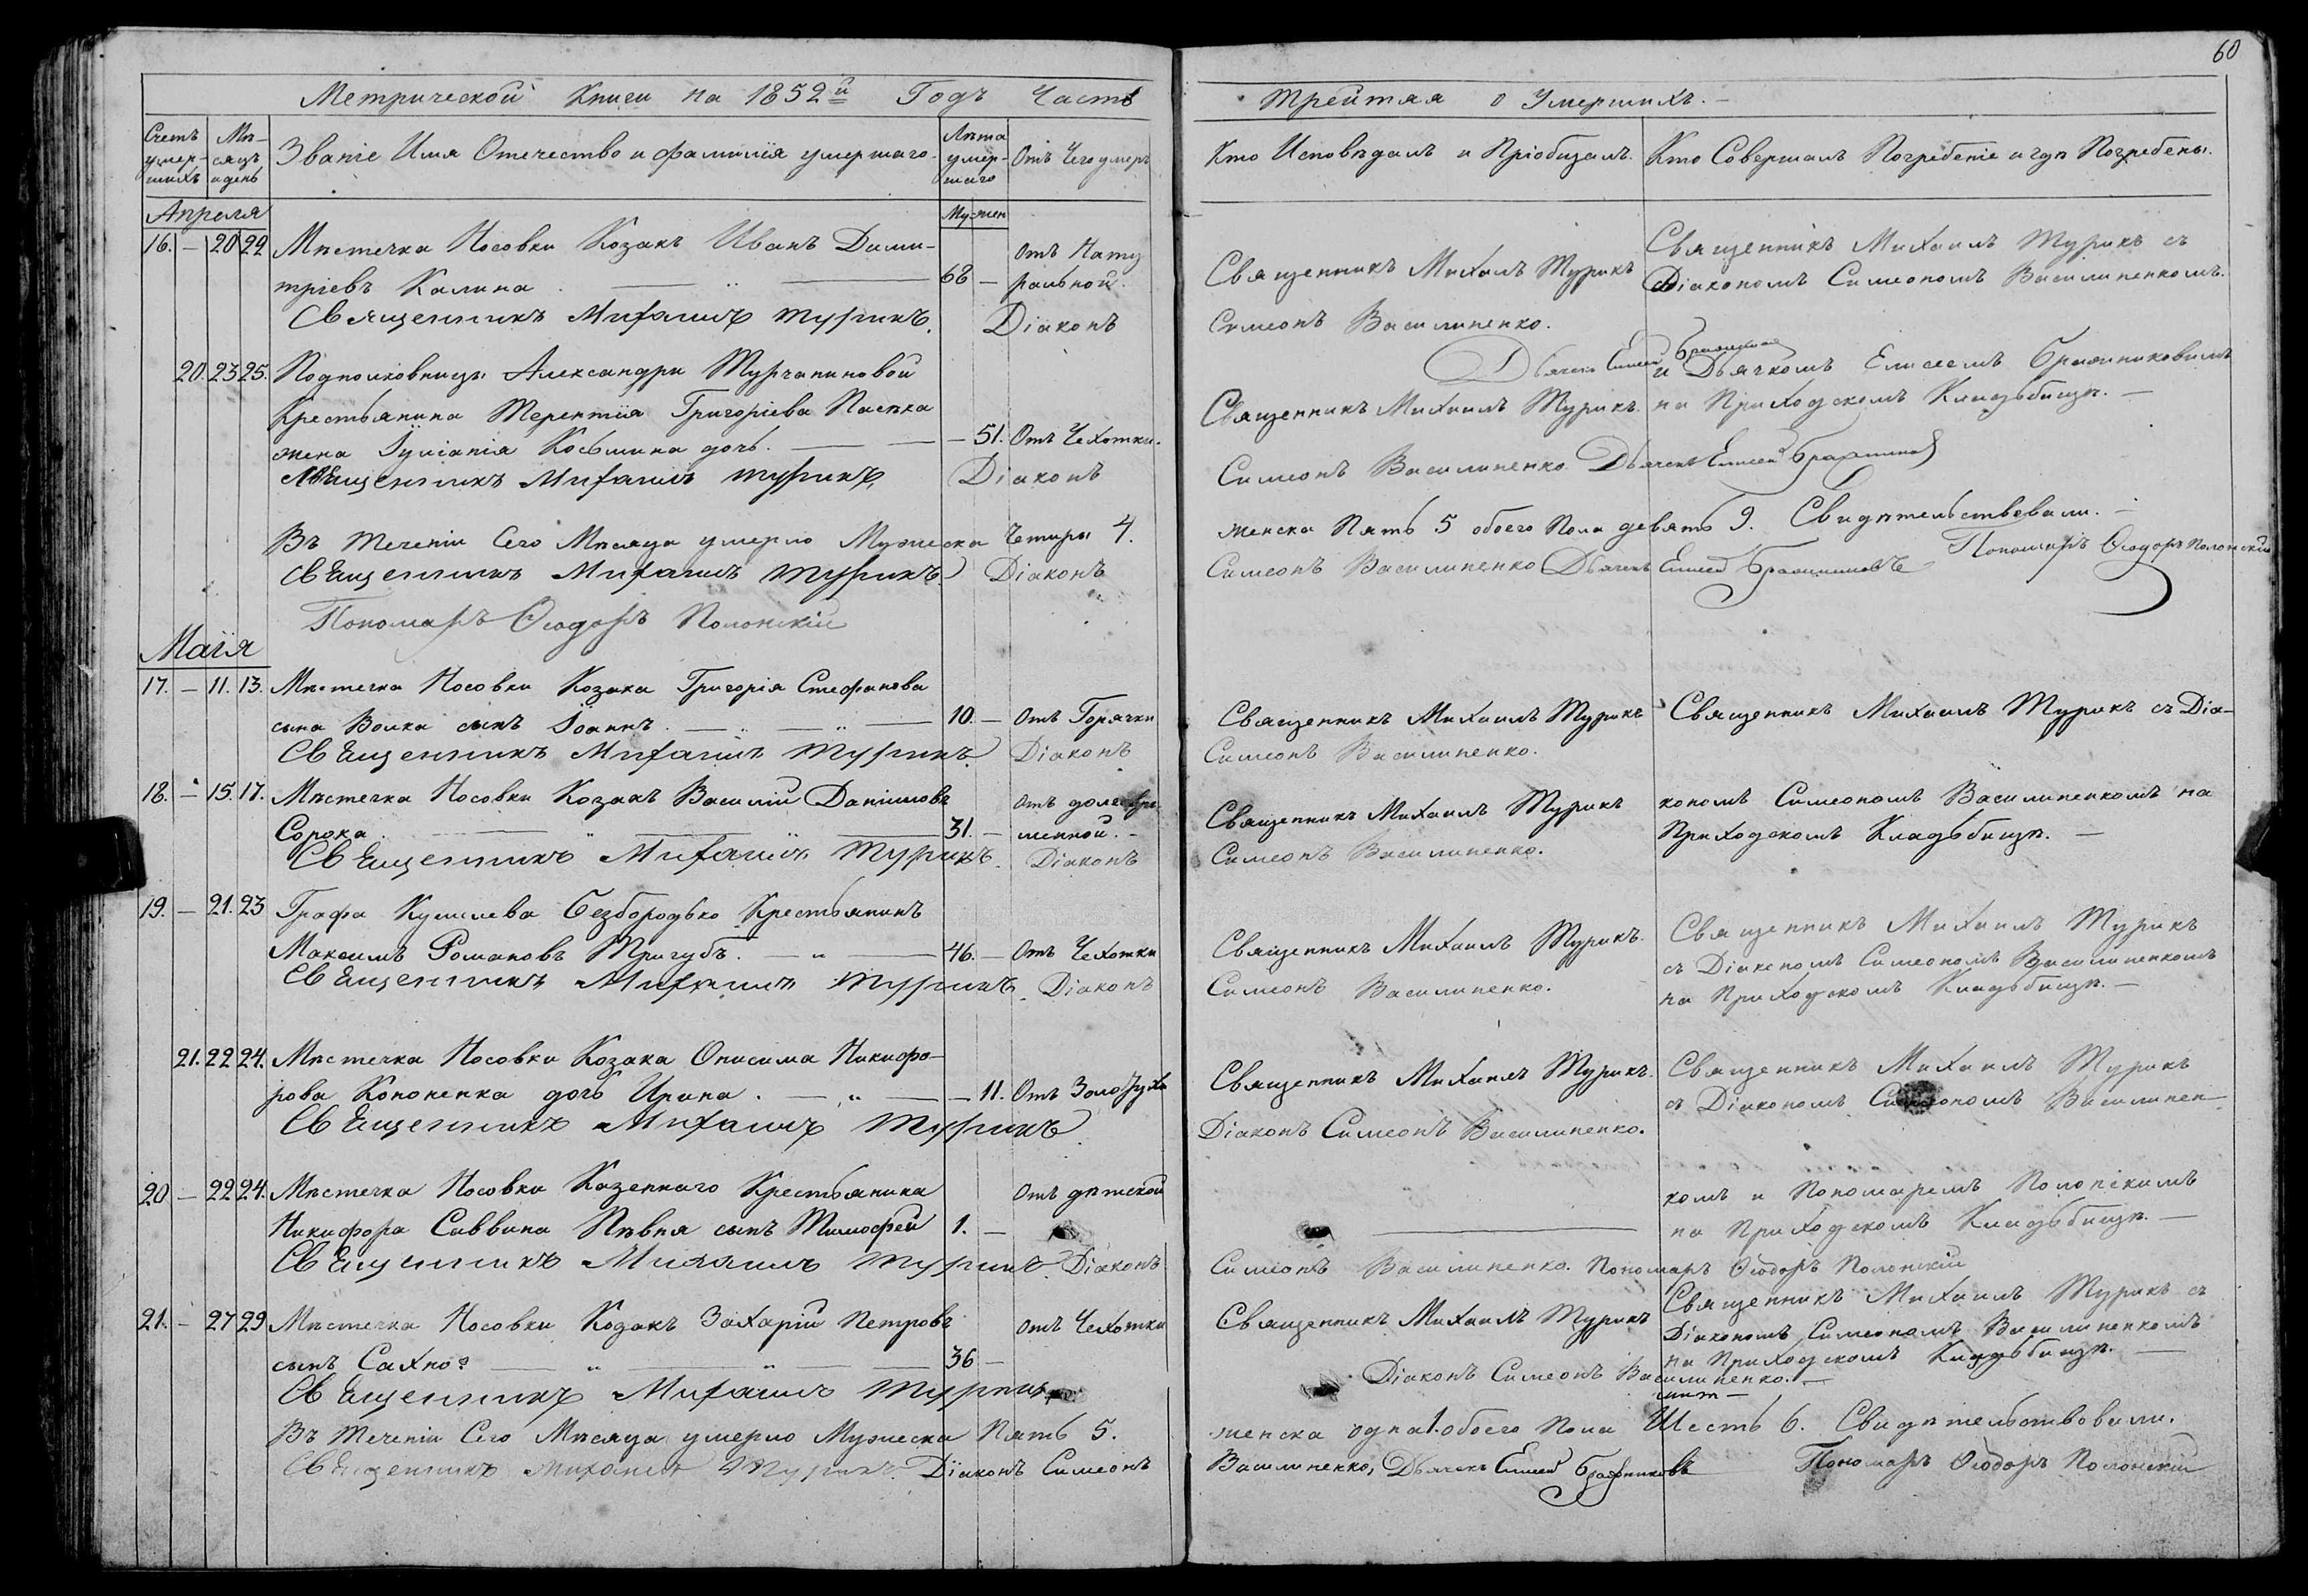 60
Метрической Книги на 1852й Годъ Часть
Счетъ умер-шихъ
Мѣ-сяцъ и день
Званіе Имя Отечество и фамилія умершаго.
Лѣта умер-шаго
Отъ Чего умеръ
Апреля
Му- жен
16. — 20 22 Мѣстечка Носовки Козакъ Иванъ Дими-
тріевъ Калина. 68 — Отъ Нату
ральной.
Священникъ Михаилъ Турикъ. Діаконъ
20. 23 25. Подполковницы Александри Турчаниновой
Крестьянина Терентія Григоріева Пасѣка
жена Іуліанія Косьмина дочь. — 51. Отъ Чехотки.
Священникъ Михаилъ Турикъ. Діаконъ
Въ теченіи Сего Мѣсяца умерло Мужеска Четыри 4.
Священникъ Михаилъ Турикъ Діаконъ
Пономаръ Ѳеодоръ Полонскій
Маія
17. — 11. 13. Мѣстечка Носовки Козака Григорія Стефанова
сына Волка сынъ Іоаннъ. 10. — Отъ Горячки
Священникъ Михаилъ Турикъ. Діаконъ
18. — 15. 17. Мѣстечка Носовки Козакъ Василій Даніиловъ
Сорока. 31. — отъ
Священникъ Михаилъ Турикъ. Діаконъ
19. — 21. 23 Графа Кушлева Безбородько Крестьянинъ
Максимъ Романовъ Тригубъ. 46. — Отъ Чехотки
Священникъ Михаилъ Турикъ. Діаконъ
21. 22 24. Мѣстечка Носовки Козака Онисима Никифо-
рова Кононенка дочь Ирина. — 11. Отъ Золотухи
Священникъ Михаилъ Турикъ
20 — 22 24. Мѣстечка Носовки Казеннаго Крестьянина Отъ дѣтской
Никифора Саввина Пѣвня сынъ Тимофей 1. —
Священникъ Михаилъ Турикъ. Діаконъ
21. — 27 29 Мѣстечка Носовки Козакъ Захарій Петровъ отъ Чехотки
сынъ Сахно 36 —
Священникъ Михаилъ Турикъ
Въ теченіи Сего Мѣсяца умерло Мужеска Пять 5.
Священникъ Михаилъ Турикъ. Діаконъ Симеонъ
Трейтяя о Умершихъ. —
Кто Исповѣдалъ и Пріобщалъ.
Кто Совершалъ Погребеніе и гдѣ Погребены.
Священникъ Михаилъ Турикъ
Симеонъ Василиненко.
Священникъ Михаилъ Турикъ съ
Діакономъ Симеономъ Василиненкомъ.
Дьячокъ Елисей Бражников
и Дьячкомъ Елисеемъ Бражниковимъ
Священникъ Михаилъ Турикъ. на Приходскомъ Кладьбищѣ. —
Симеонъ Василиненко Дьячокъ Елисей Бражников
женска Пять 5 обоего Пола девять 9. Свидѣтельствовали. —
Симеонъ Василиненко Дьячокъ Елисей Бражниковъ Пономаръ Ѳеодоръ Полонскій
Священникъ Михаилъ Турикъ Священникъ Михаилъ Турикъ съ Діа-
Симеонъ Василиненко.
Священникъ Михаилъ Турикъ кономъ Симеономъ Василиненкомъ на
Симеонъ Василиненко. Приходскомъ Кладьбищѣ. —
Священникъ Михаилъ Турикъ.
Симеонъ Василиненко.
Священникъ Михаилъ Турикъ
съ Діакономъ Симеономъ Василиненкомъ
на Приходскомъ Кладьбищѣ. —
Священникъ Михаилъ Турикъ.
Діаконъ Симеонъ Василиненко.
Священникъ Михаилъ Турикъ
съ Діакономъ Симеономъ Василинен
комъ и Пономаремъ Полонскимъ
на Приходскомъ Кладьбищѣ. —
Симеонъ Василиненко. Пономаръ Ѳеодоръ Полонскій
Священникъ Михаилъ Турикъ
Діаконъ Симеонъ Василиненко. —
Священникъ Михаилъ Турикъ съ
Діакономъ Симеономъ Василиненкомъ
на Приходскомъ Кладьбищѣ. —
женска одна 1. обоего Пола Шесть 6. Свидѣтельствовали.
Василиненко, Дьячокъ Елисей Бражниковъ Пономаръ Ѳеодоръ Полонскій